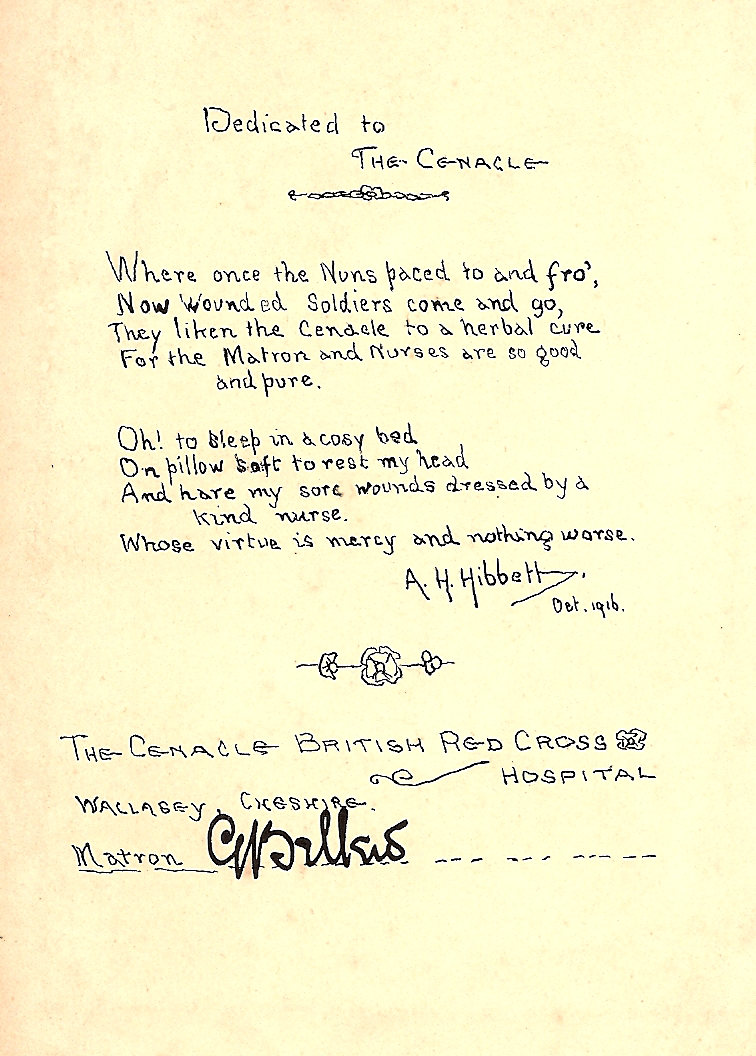 Dedicated to
THE CENACLE
Where once the Nuns paced to and fro',
Now Wounded Soldiers come and go,
They liken the Cenacle to a herbal cure
For the Matron and Nurses are so good
and pure.
Oh! to sleep in a cosy bed
On pillow soft to rest my head
And have my sore wounds dressed by a
kind nurse.
Whose virtue is mercy and nothing worse.
A. H. Hibbett.
Oct. 1916.
THE CENACLE BRITISH RED CROSS
HOSPITAL
WALLASEY, CHESHIRE.
Matron